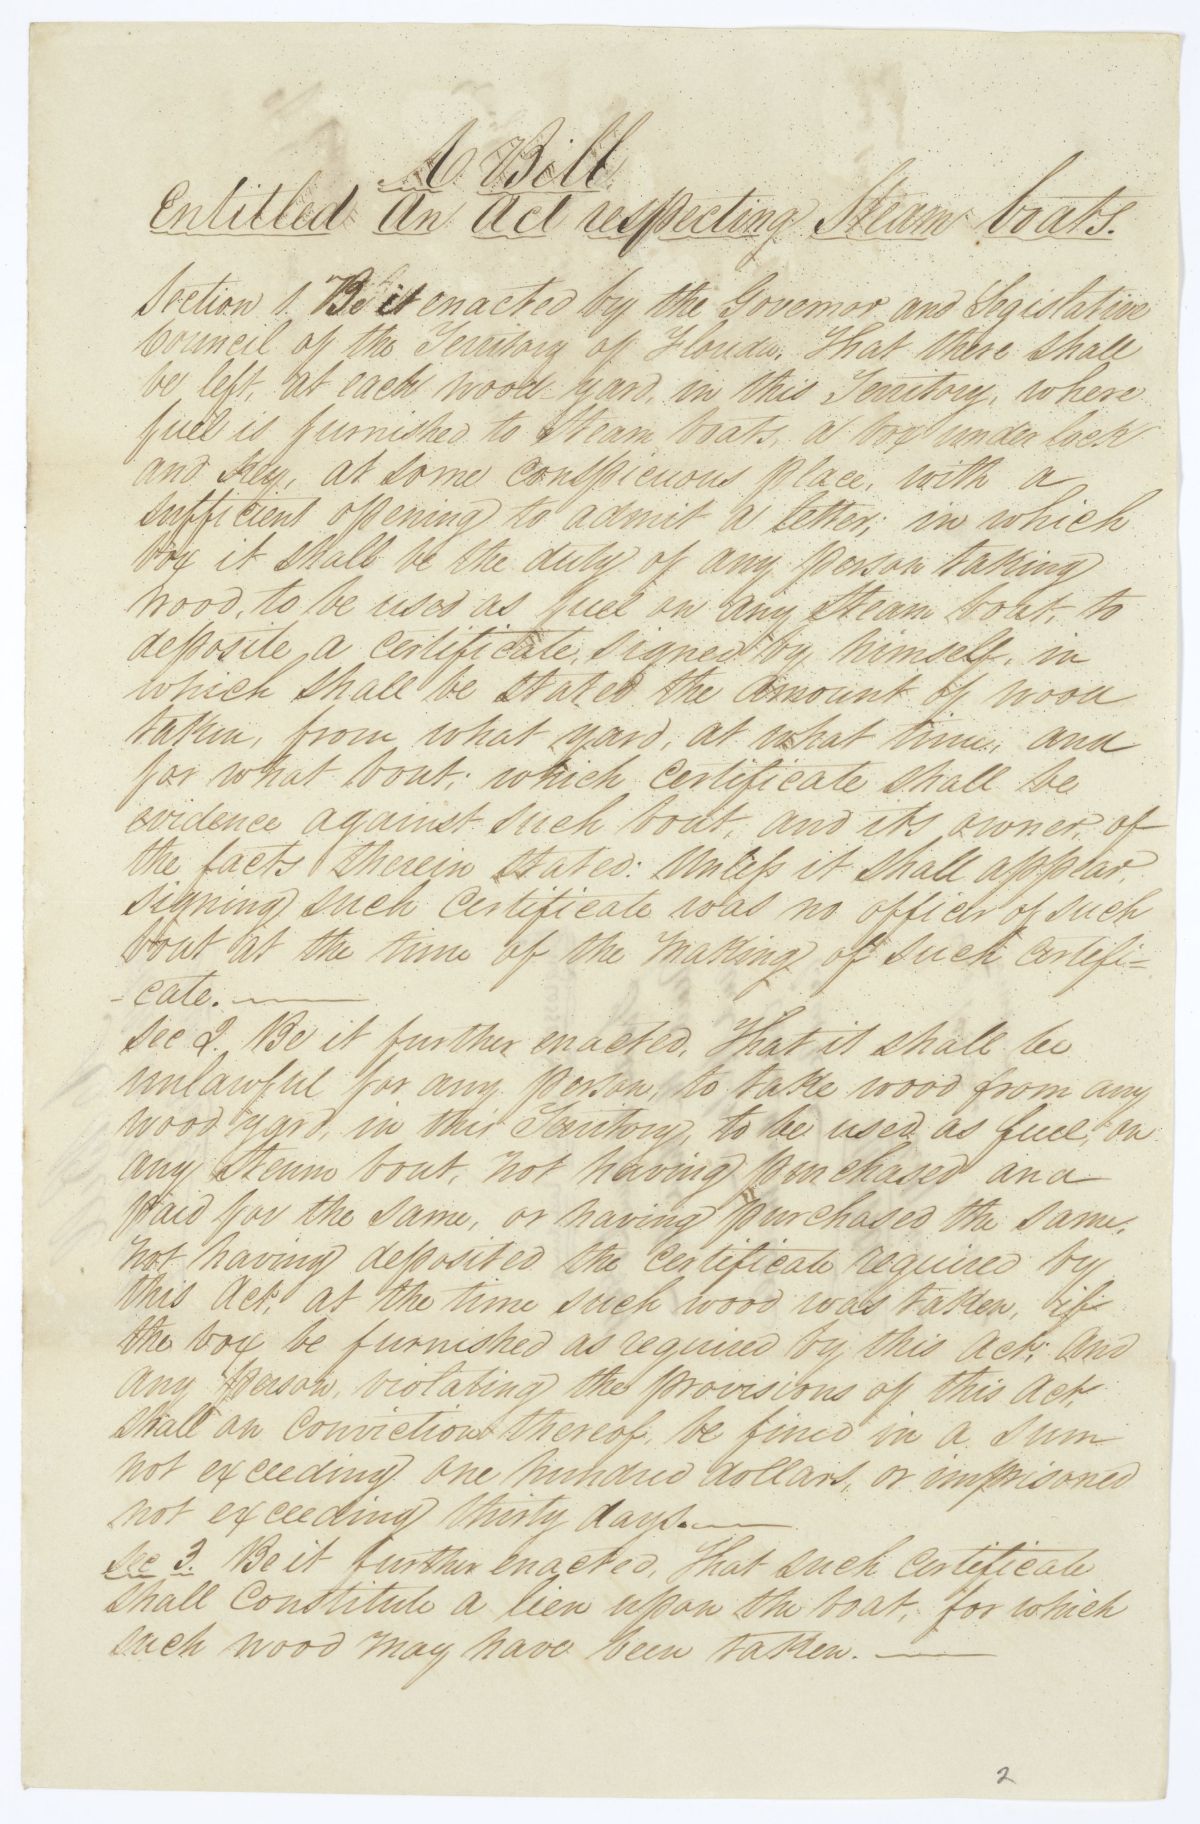 A Bill
Entitled An Act respecting Steam boats.
Section 1. Be it enacted by the Governor and Legislative
Council of the Territory of Florida, That there shall
be left, at each wood-yard, in this Territory, where
fuel is furnished to Steam boats, a box under lock
and key, at some conspicuous place, with a
sufficient opening to admit a letter; in which
box it shall be the duty of any person taking
wood, to be used as fuel on any Steam boat, to
deposite a certificate, signed by himself, in
which shall be stated the amount of wood
taken, from what yard, at what time, and
for what boat; which certificate shall be
evidence against such boat, and its owner, of
the facts therein stated: Unless it shall appear,
signing such certificate was no officer of such
boat at the time of the making of such certifi=
-cate.
Sec 2. Be it further enacted, That it shall be
unlawful for any person, to take wood from any
wood yard, in this Territory, to be used as fuel, on
any Steam boat, not having purchased and
paid for the same, or having purchased the same,
not having deposited the certificate required by
this Act, at the time such wood was taken, if
the box be furnished as required by this Act; and
any person, violating the provisions of this Act,
shall on conviction thereof, be fined in a sum
not exceeding one hundred dollars, or imprisoned
not exceeding thirty days.
Sec 3. Be it further enacted, That such certificate
shall constitute a lien upon the boat, for which
such wood may have been taken.
2